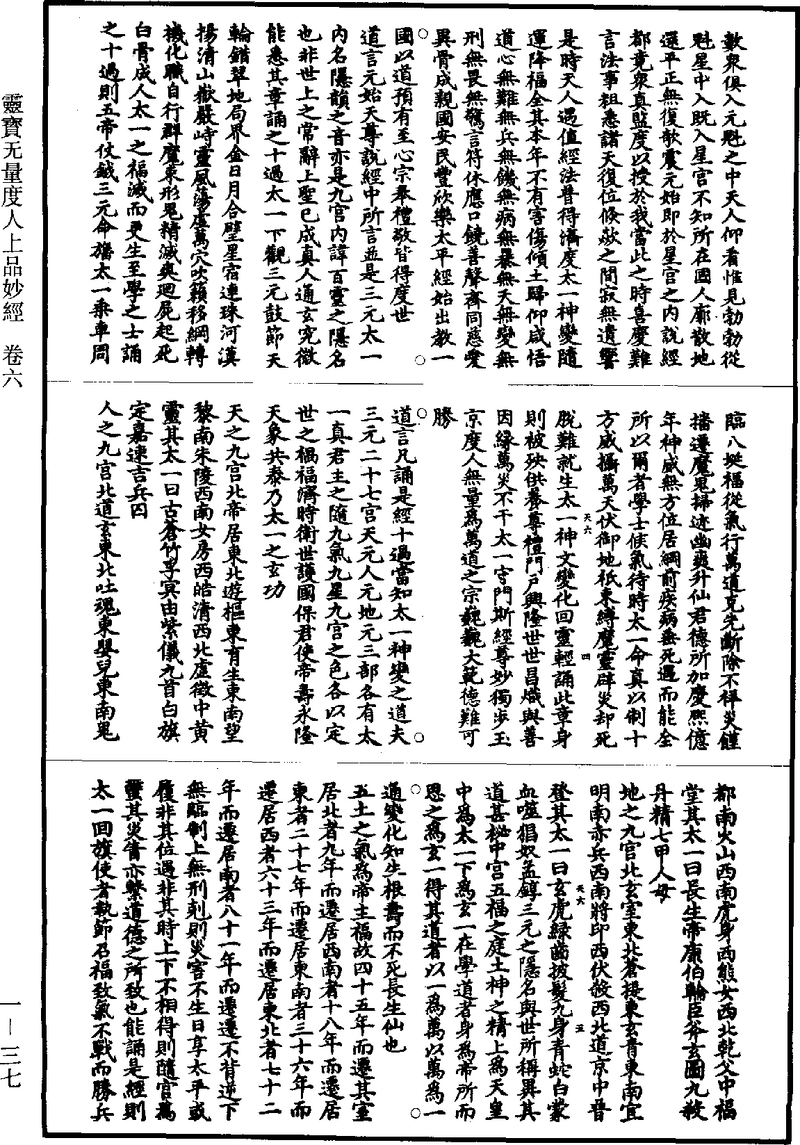 靈寶无量度人上品妙經　卷六
數衆俱入元魁之中天人仰看惟見勃勃從
魁星中入既入星宮不知所在國人廓散地
還平正無復欹震元始即於星宮之内說經
都竟衆真監度以授於我當此之時喜慶難
言法事粗悉諸天復位倏欻之間寂無遺響
是時天人遇值經法普得濟度太一神變隨
運降福全其本年不有害傷傾土歸仰咸悟
道心無難無兵無饑無病無暴無夭無變無
刑無畏無驚言符休應口饒善聲齊同慈愛
異骨成親國安民豐欣樂太平經始出教一
國以道預有至心宗奉禮敬皆得度世
道言元始天尊說經中所言並是三元太一
内名隱韻之音亦是九宮内諱百靈之隱名
也非世上之常辭上聖已成真人通玄究微
能悉其章誦之十過太一下觀三元鼓節天
輪錯翠地局界金日月合璧星宿連珠河漢
揚清山嶽嚴峙靈風蕩虛萬穴吹籟移綱轉
機化職自行群魔束形鬼精滅爽迴屍起死
白骨成人太一之福滅而更生至學之士誦
之十過則五帝仗鉞三元命旛太一乘車周
臨八埏福從氣行萬道克先斷除不祥災饉
播遷魔鬼掃迹幽爽升仙君德所加慶熙億
年神威無方位居綱前疾病無死遇而能全
所以爾者學士候氣待時太一命真以制十
方威攝萬天伏御地祇束縛魔靈辟災却死
脫難就生太一神文變化回靈輕誦此章身
則被殃供養尊禮門戶興隆世世昌熾與善
因緣萬災不干太一守門斯經尊妙獨步玉
京度人無量爲萬道之宗巍巍大範德難可
勝
道言凡誦是經十過當知太一神變之道夫
三元二十七宮天元人元地元三部各有太
一真君主之隨九氣九星九宮之色各以定
世之禍福濟時衛世護國保君使帝壽永隆
天象共泰乃太一之玄功
天之九宮北帝居東北遊樞東有生東南望
黎南朱陵西南女房西皓清西北虛微中黄
靈其太一曰古蒼竹孚冥由紫儀九首白旗
定嘉速吉兵囚
人之九宮北道玄東北吐魂東嬰兒東南鬼
都南火山西南虎身西熊女西北乾父中福
堂其太一曰長生帝康伯翰臣斧玄圖九殺
丹精七甲人母
地之九宮北玄室東北蒼提東玄青東南宜
明南赤兵西南將印西伏飲西北道京中晉
登其太一曰玄虎緑齒披髮九身青蛇白蒙
血噬猖奴孟錞三元之隱名與世所稱異其
道甚祕中宮五福之庭土神之精上爲天皇
中爲太一下爲玄一在學道者身爲帝所而
思之爲玄一得其道者以一爲萬以萬爲一
通變化知生根壽而不死長生仙也
五土之氣為帝主福故四十五年而遷其室
居北者九年而遷居西南者十八年而遷居
東者二十七年而遷居東南者三十六年而
遷居西者六十三年而遷居東北者七十二
年而遷居南者八十一年而遷遷不背逆下
無臨制上無刑剋則災害不生日享太平或
履非其位遇非其時上下不相得則隨宮爲
釁其災眚亦繫道德之所致也能誦是經則
太一回旗使者執節召福致氣不戰而勝兵
天六
四
天六
五
一—三七